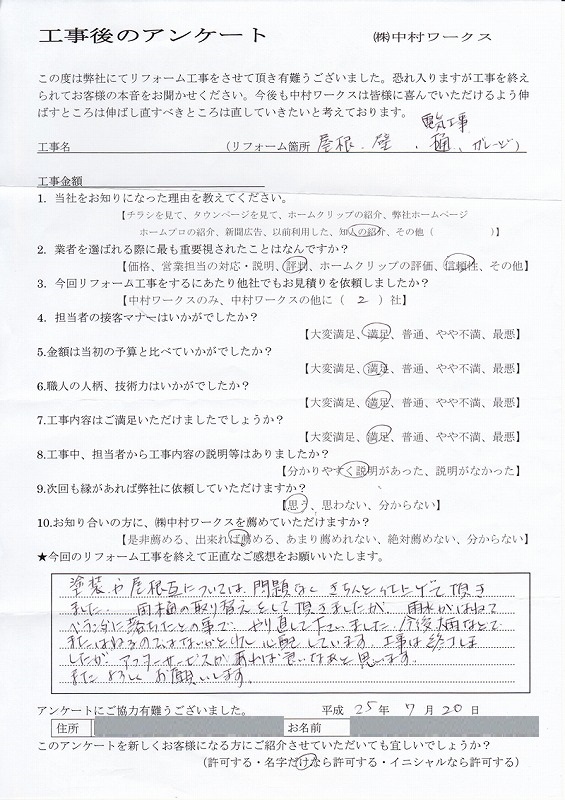 工事後のアンケート ㈱中村ワークス
この度は弊社にてリフォーム工事をさせて頂き有難うございました。恐れ入りますが工事を終え
られてお客様の本音をお聞かせください。今後も中村ワークスは皆様に喜んでいただけるよう伸
ばすところは伸ばし直すべきところは直していきたいと考えております。
電気工事
工事名 (リフォーム箇所 屋根、壁、樋、ガレージ)
工事金額
1. 当社をお知りになった理由を教えてください。
【チラシを見て、タウンページを見て、ホームクリップの紹介、弊社ホームページ
ホームプロの紹介、新聞広告、以前利用した、知人の紹介、その他( )】
2. 業者を選ばれる際に最も重要視されたことはなんですか?
【価格、営業担当の対応・説明、評判、ホームクリップの評価、信頼性、その他】
3. 今回リフォーム工事をするにあたり他社でもお見積りを依頼しましたか?
【中村ワークスのみ、中村ワークスの他に( 2 )社】
4. 担当者の接客マナーはいかがでしたか?
【大変満足、満足、普通、やや不満、最悪】
5.金額は当初の予算と比べていかがでしたか?
【大変満足、満足、普通、やや不満、最悪】
6.職人の人柄、技術力はいかがでしたか?
【大変満足、満足、普通、やや不満、最悪】
7.工事内容はご満足いただけましたでしょうか?
【大変満足、満足、普通、やや不満、最悪】
8.工事中、担当者から工事内容の説明等はありましたか?
【分かりやすく説明があった、説明がなかった】
9.次回も縁があれば弊社に依頼していただけますか?
【思う、思わない、分からない】
10.お知り合いの方に、㈱中村ワークスを薦めていただけますか?
【是非薦める、出来れば薦める、あまり薦めれない、絶対薦めない、分からない】
★今回のリフォーム工事を終えて正直なご感想をお願いいたします。
塗装や屋根瓦については問題なくきちんと仕上げて頂き
ました。雨樋の取り替えをして頂きましたが、雨水がはねて
ベランダに落ちたとの事で、やり直して下さいました。今後大雨などで
またはねるのではないかと少し心配しています。工事は終了しま
したが、アフターサービスがあれば良いなあと思います。
またよろしくお願いします。
アンケートにご協力有難うございました。 平成 25 年 7 月 20 日
住所 お名前
このアンケートを新しくお客様になる方にご紹介させていただいても宜しいでしょうか?
(許可する・名字だけなら許可する・イニシャルなら許可する)